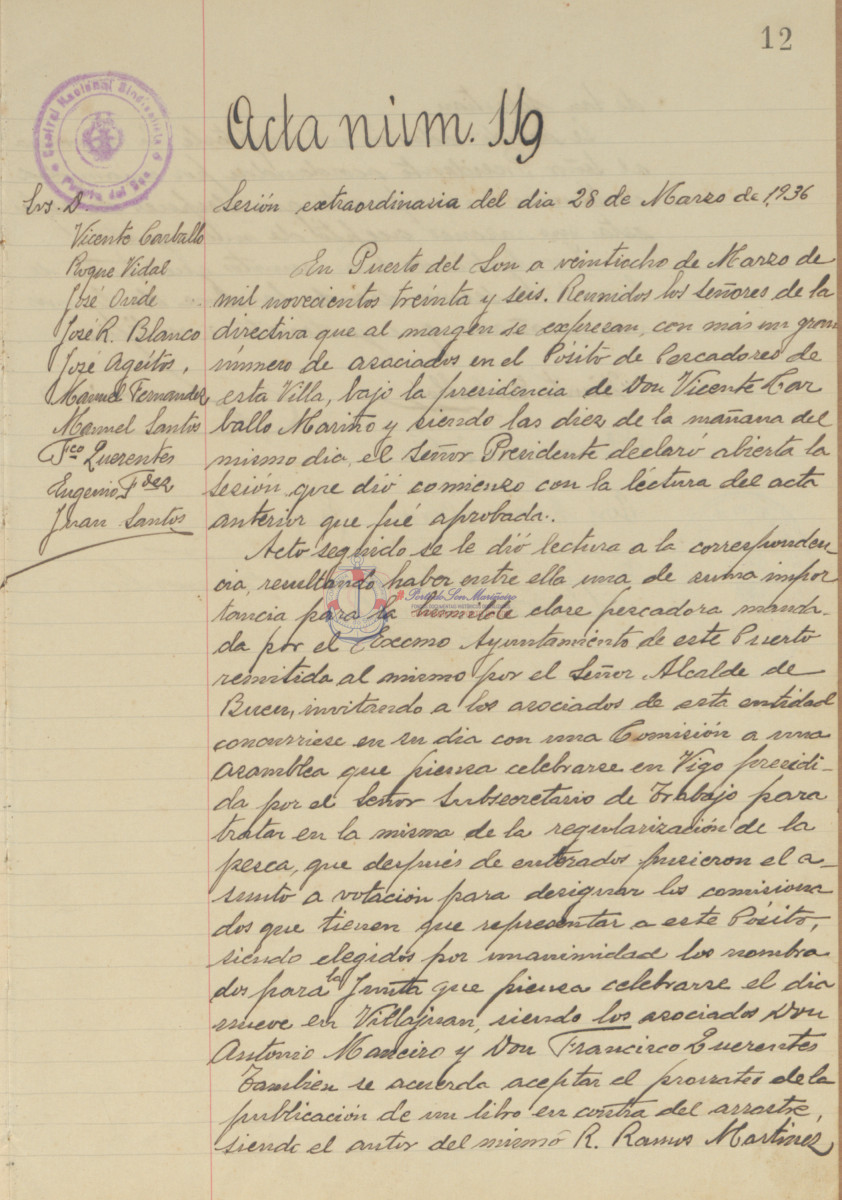 12
Central Nacional Sindicalista
Puerto del Son
Acta núm. 119
Srs. D.
Vicente Carballo
Roque Vidal
José Ovide
José R. Blanco
José Ageitos,
Manuel Fernandez
Manuel Santos
Fco Querentes
Eugenio Fdez
Juan Santos
Sesión extraordinaria del dia 28 de Marzo de 1,936
En Puerto del Son a veintiocho de Marzo de
mil novecientos treinta y seis. Reunidos los señores de la
directiva que al margen se expresan, con más un gran
número de asociados en el Pósito de Pescadores de
esta Villa, bajo la presidencia de Don Vicente Car
ballo Mariño y siendo las diez de la mañana del
mismo dia, el Señor Presidente declaró abierta la
sesión que dió comienzo con la léctura del acta
anterior que fué aprobada.
Acto seguido se le dió lectura a la corresponden-
cia, resultando haber entre ella una de suma impor
tancia para la humilde clase pescadora manda-
da por el Excmo Ayuntamiento de este Puerto
remitida al mismo por el Señor Alcalde de
Bueu, invitando a los asociados de esta entidad
concurriese en su dia con una Comisión a una
asamblea que piensa celebrarse en Vigo presidi-
da por el Señor Subsecretario de Trabajo para
tratar en la misma de la regularización de la
pesca, que después de enterados pusieron el a-
sunto a votación para designar los comisiona
dos que tienen que representar a este Pósito,
siendo elegidos por unanimidad los nombra
dos para la Junta que piensa celebrarse el dia
nueve en Villajuan, siendo los asociados Don
Antonio Maneiro y Don Francisco Querentes
Tambien se acuerda aceptar el prorrateo de la
publicación de un libro en contra del arrastre,
siendo el autor del mismo R. Ramos Martinez
Porto do Son Mariñeiro